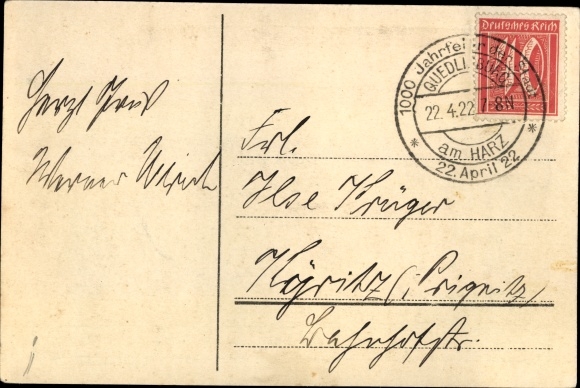 Herzl. Gruß
Werner Ulrich
Deutsches Reich
1000 Jahrfeier der Stadt
QUEDLINBURG
22.4.22 7-8N
am HARZ
* 22. April 22 *
Frl.
Ilse Krüger
Kyritz (Prignitz)
Bahnhofstr.